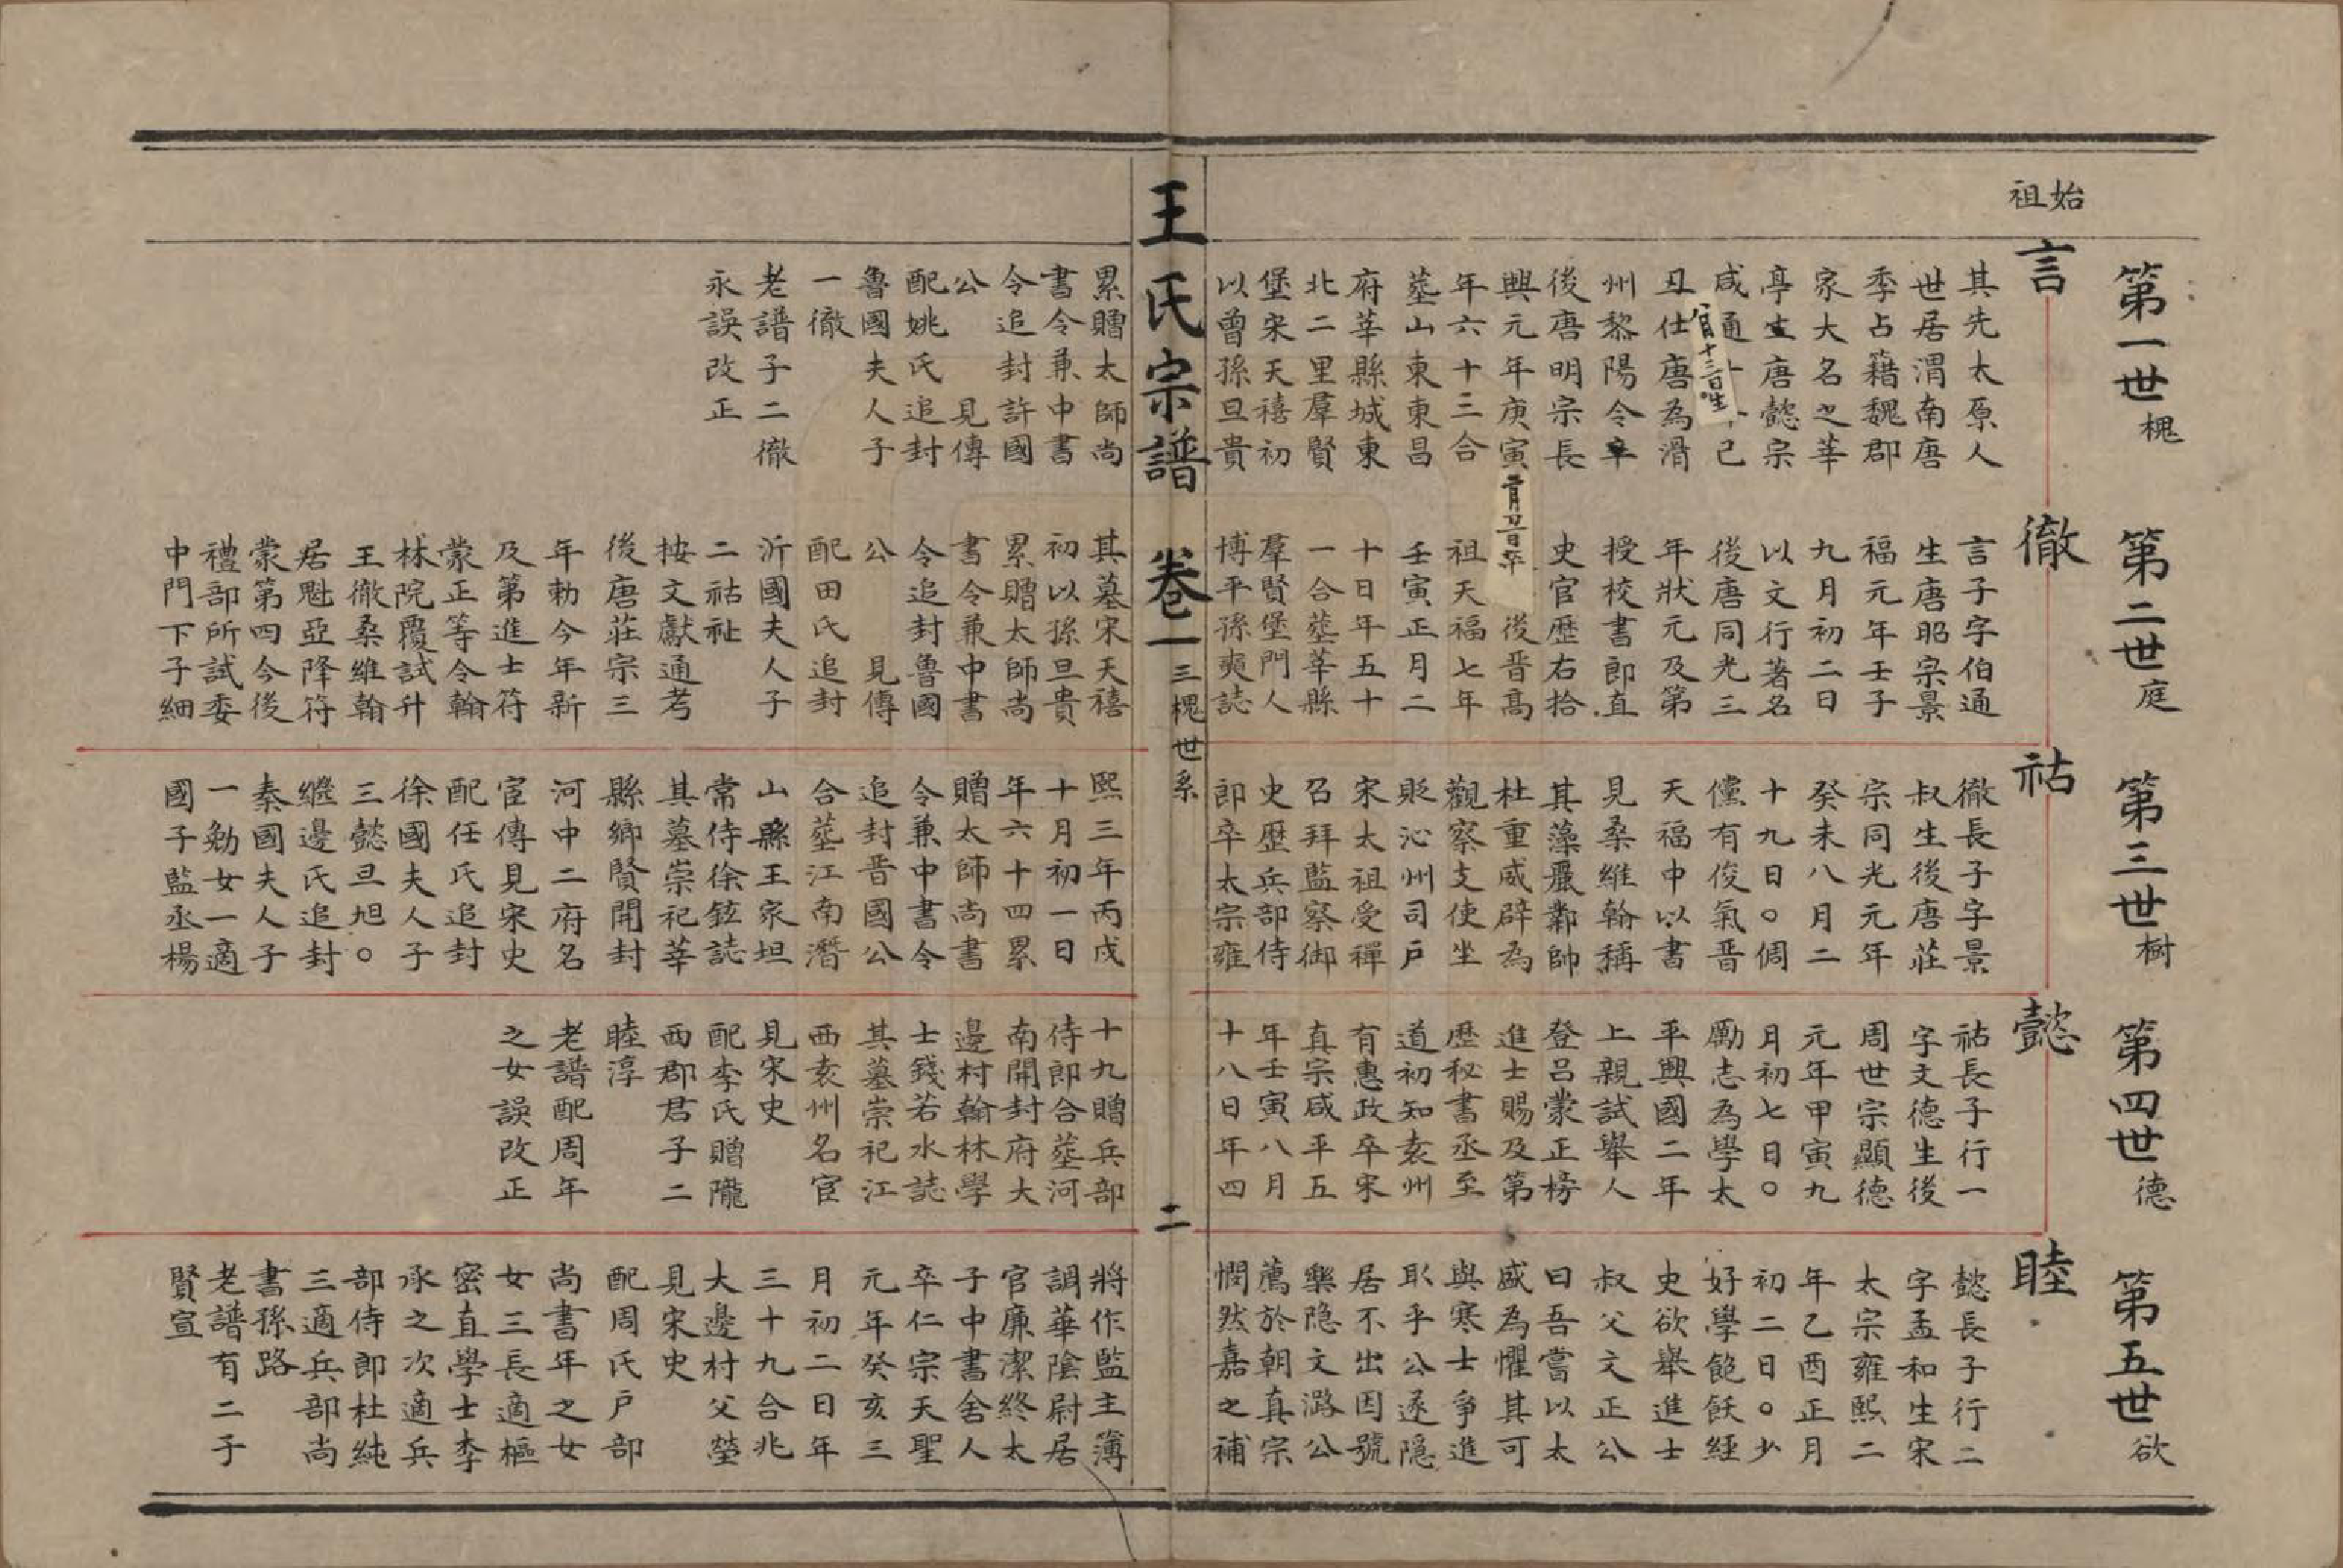 始祖
第一世槐
言
其先太原人
世居渭南唐
季占籍魏郡
家大名之莘
亭生唐懿宗
咸通己
月十三日生
丑仕唐為滑
州黎陽令卒
後唐明宗長
興元年庚寅
年六十三合
塟山東東昌
府莘縣城東
北二里羣賢
堡宋天禧初
以曾孫旦貴
第二世庭
徹
言子字伯通
生唐昭宗景
福元年壬子
九月初二日
以文行著名
後唐同光三
年狀元及第
授校書郎直
史官歷右拾
後晋高
祖天福七年
壬寅正月二
十日年五十
一合塟莘縣
羣賢堡門人
博平孫奭誌
第三世樹
祜
徹長子字景
叔生後唐莊
宗同光元年
癸未八月二
十九日○倜
儻有俊氣晋
天福中以書
見桑維翰稱
其藻麗鄴帥
杜重威辟為
觀察支使坐
貶沁州司戶
宋太祖受禪
召拜監察御
史歷兵部侍
郎卒太宗雍
第四世德
懿
祜長子行一
字文德生後
周世宗顯德
元年甲寅九
月初七日○
勵志為學太
平興國二年
上親試舉人
登呂蒙正榜
進士賜及第
歷秘書丞至
道初知袁州
有惠政卒宋
真宗咸平五
年壬寅八月
十八日年四
第五世欲
睦
懿長子行二
字孟和生宋
太宗雍熙二
年乙酉正月
初二日○少
好學飽飫經
史欲舉進士
叔父文正公
曰吾嘗以太
盛為懼其可
與寒士爭進
取乎公遂隠
居不出因號
樂隐文潞公
薦於朝真宗
憫然嘉之補
王氏宗譜 卷一 三槐世系 二
累贈太師尚
書令兼中書
令追封許國
公 見傳
配姚氏追封
魯國夫人子
一徹
老譜子二徹
永誤改正
其墓宋天禧
初以孫旦貴
累贈太師尚
書令兼中書
令追封魯國
公 見傳
配田氏追封
沂國夫人子
二祜祉
按文獻通考
後唐莊宗三
年勅今年新
及第進士符
蒙正等令翰
林院覆試升
王徹桑維翰
居魁亞降符
蒙第四今後
禮部所試委
中門下子細
熙三年丙戌
十月初一日
年六十四累
贈太師尚書
令兼中書令
追封晋國公
合塟江南潛
山縣王家坦
常侍徐鉉誌
其墓崇祀莘
縣鄉賢開封
河中二府名
宦傳見宋史
配任氏追封
徐國夫人子
三懿旦旭○
繼邊氏追封
秦國夫人子
一勉女一適
國子監丞楊
十九贈兵部
侍郎合塟河
南開封府大
邊村翰林學
士錢若水誌
其墓崇祀江
西袁州名宦
見宋史
配李氏贈隴
西郡君子二
睦淳
老譜配周年
之女誤改正
將作監主簿
調華陰尉居
官廉潔終太
子中書舍人
卒仁宗天聖
元年癸亥三
月初二日年
三十九合兆
大邊村父塋
見宋史
配周氏戶部
尚書年之女
女三長適樞
密直學士李
承之次適兵
部侍郎杜純
三適兵部尚
書孫路
老譜有二子
賢宣